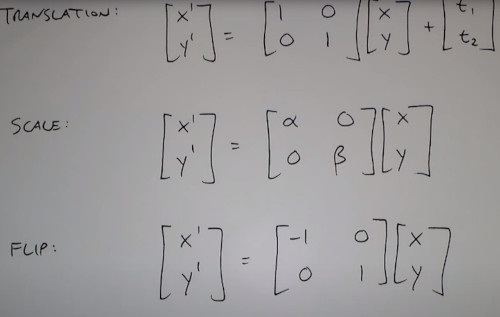 TRANSLATION: [x' y'] = [1 0 0 1][x y] + [t₁ t₂]
SCALE: [x' y'] = [α 0 0 β][x y]
FLIP: [x' y'] = [-1 0 0 1][x y]